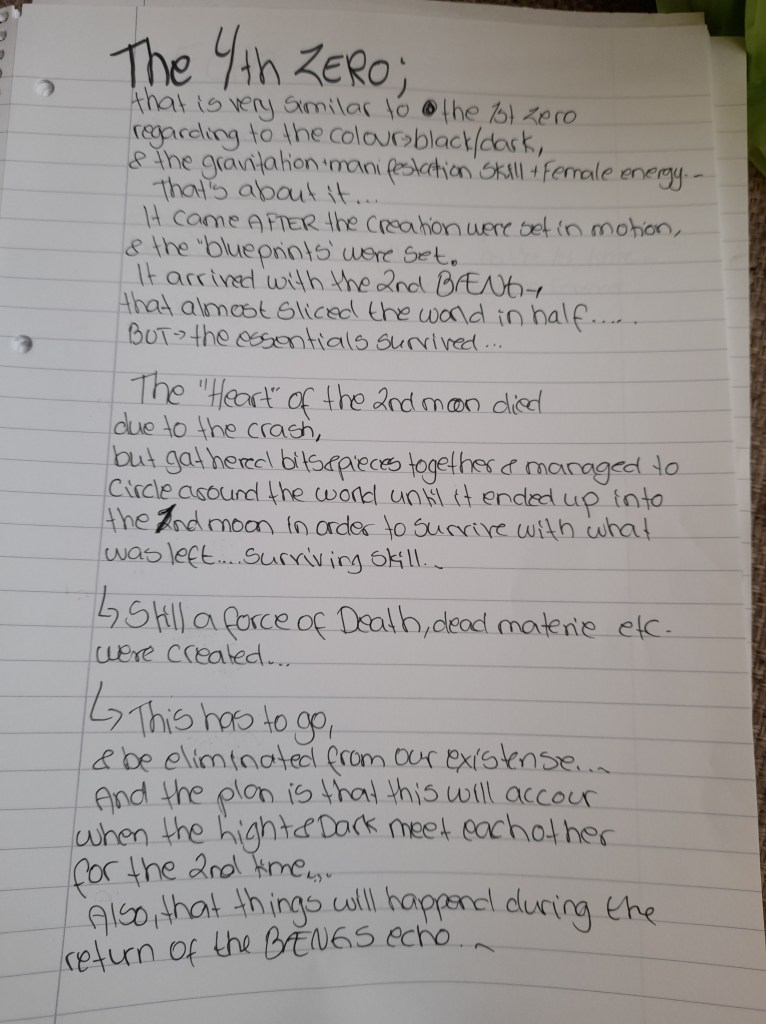 The 4th ZERO;
that is very similar to the 1st zero
regarding to the colour→black/dark,
& the gravitation·manifestation skill + Female energy..
That's about it...
It came AFTER the creation were set in motion,
& the "blueprints' were set.
It arrived with the 2nd BÆNG→
that almost sliced the world in half.....
BUT→the essentials survived...
The "Heart" of the 2nd moon died
due to the crash,
but gathered bits&pieces together & managed to
circle around the world until it ended up into
the 2nd moon in order to survive with what
was left....surviving skill..
↳ Still a force of Death, dead materie etc.
were created...
↳ This has to go,
& be eliminated from our existense...
And the plan is that this will accour
when the Light & Dark meet eachother
for the 2nd time....
Also, that things will happend during the
return of the BÆNGS echo...